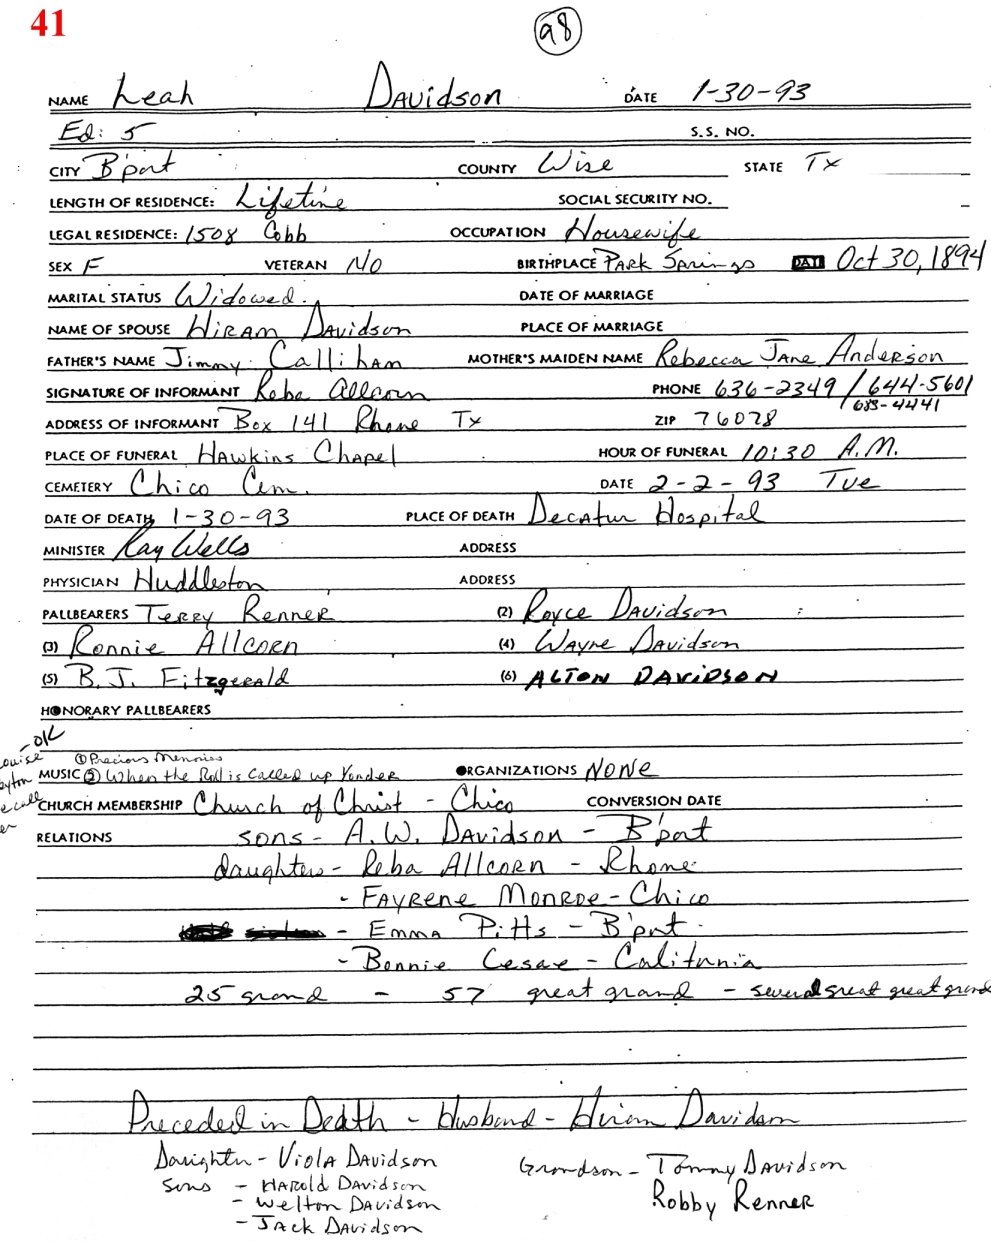 41
98
NAME Leah Davidson DATE 1-30-93
Ed: 5 S.S. NO.
CITY B'port COUNTY Wise STATE Tx
LENGTH OF RESIDENCE: Lifetime SOCIAL SECURITY NO.
LEGAL RESIDENCE: 1508 Cobb OCCUPATION Housewife
SEX F VETERAN NO BIRTHPLACE PARK Springs DATE Oct 30, 1894
MARITAL STATUS Widowed. DATE OF MARRIAGE
NAME OF SPOUSE HIRAM DAVIDSON PLACE OF MARRIAGE
FATHER'S NAME Jimmy Calliham MOTHER'S MAIDEN NAME Rebecca JANE Anderson
SIGNATURE OF INFORMANT Reba Allcorn PHONE 636-2349 / 644-5601
683-4441
ADDRESS OF INFORMANT Box 141 Rhome Tx ZIP 76078
PLACE OF FUNERAL HAWKINS Chapel HOUR OF FUNERAL 10:30 A.M.
CEMETERY Chico Cem. DATE 2-2-93 Tue
DATE OF DEATH 1-30-93 PLACE OF DEATH Decatur Hospital
MINISTER Ray Wells ADDRESS
PHYSICIAN Huddleston ADDRESS
PALLBEARERS Terry Renner (2) Royce Davidson
(3) Ronnie Allcorn (4) Wayne Davidson
(5) B.J. Fitzgerald (6) ALTON DAVIDSON
HONORARY PALLBEARERS
-OK
① Precious Memories
MUSIC ② When the Roll is Called up Yonder ORGANIZATIONS NONE
CHURCH MEMBERSHIP Church of Christ - Chico CONVERSION DATE
RELATIONS sons - A.W. Davidson - B'port
daughters - Reba Allcorn - Rhome
- FAYRENE MONROE - Chico
- EMMA Pitts - B'port
- Bonnie Cesae - California
25 grand - 57 great grand - several great great grand
Preceded in Death - Husband - Hiram Davidson
Daughter - Viola Davidson Grandson - Tommy Davidson
Sons - Harold Davidson Robby Renner
- Welton Davidson
- Jack Davidson